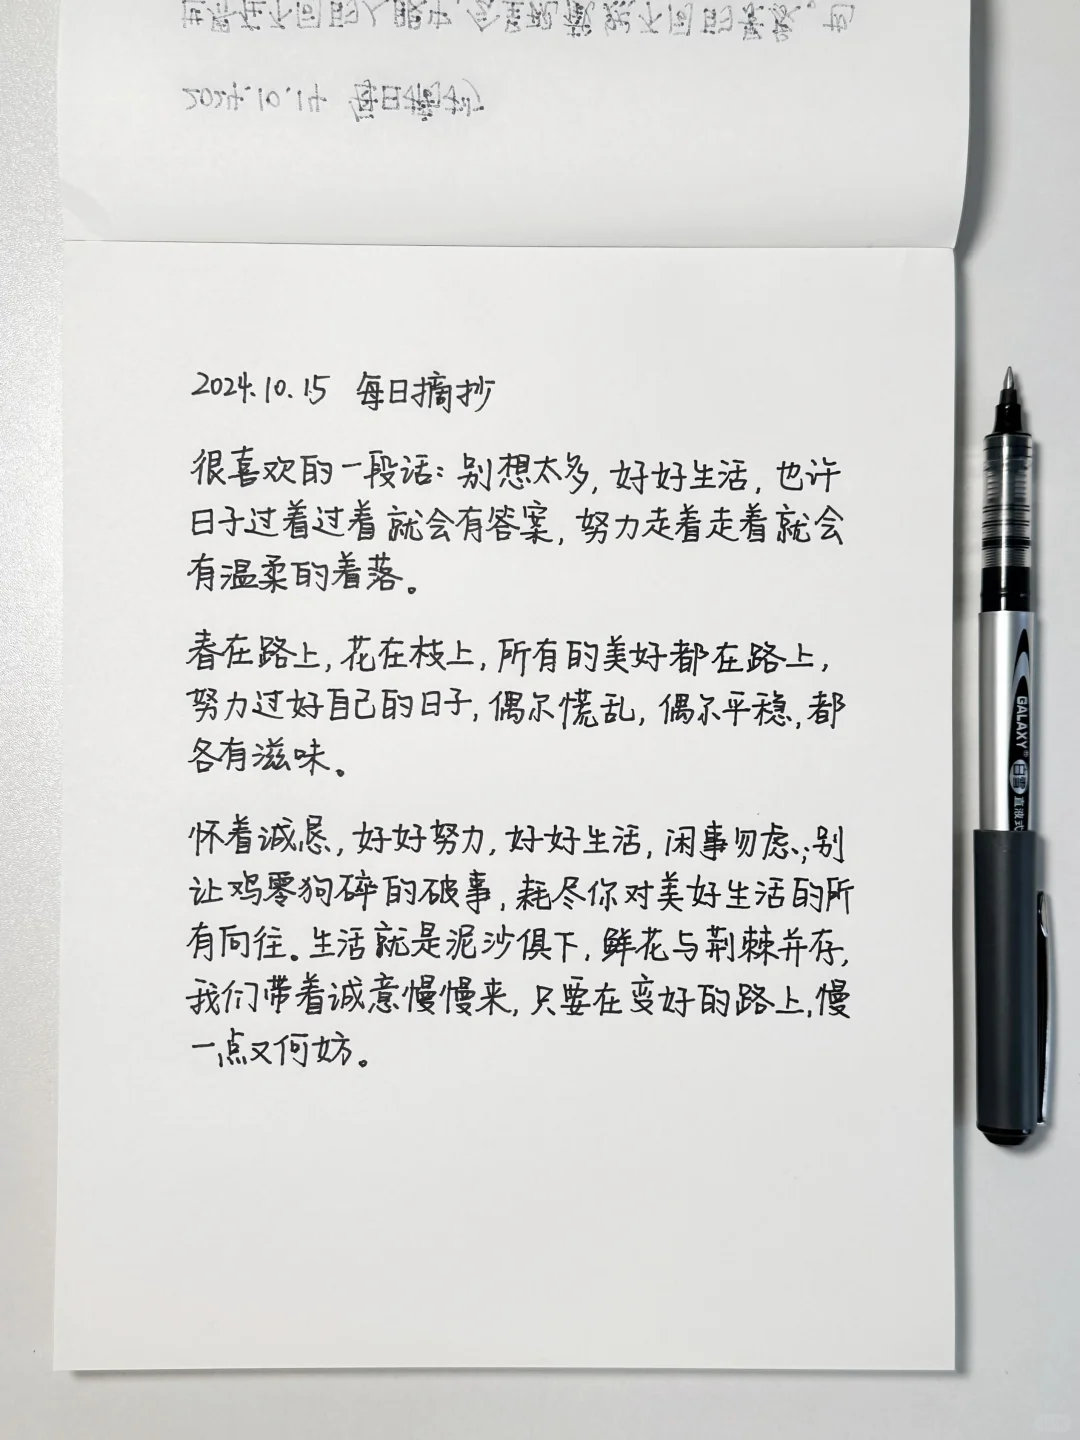 2024.10.14 每日摘抄
2024.10.15 每日摘抄
很喜欢的一段话：别想太多，好好生活，也许
日子过着过着就会有答案，努力走着走着就会
有温柔的着落。
春在路上，花在枝上，所有的美好都在路上，
努力过好自己的日子，偶尔慌乱，偶尔平稳，都
各有滋味。
怀着诚恳，好好努力，好好生活，闲事勿虑；别
让鸡零狗碎的破事，耗尽你对美好生活的所
有向往。生活就是泥沙俱下，鲜花与荆棘并存，
我们带着诚意慢慢来，只要在变好的路上，慢
一点又何妨。
GALAXY
白雪
直液式